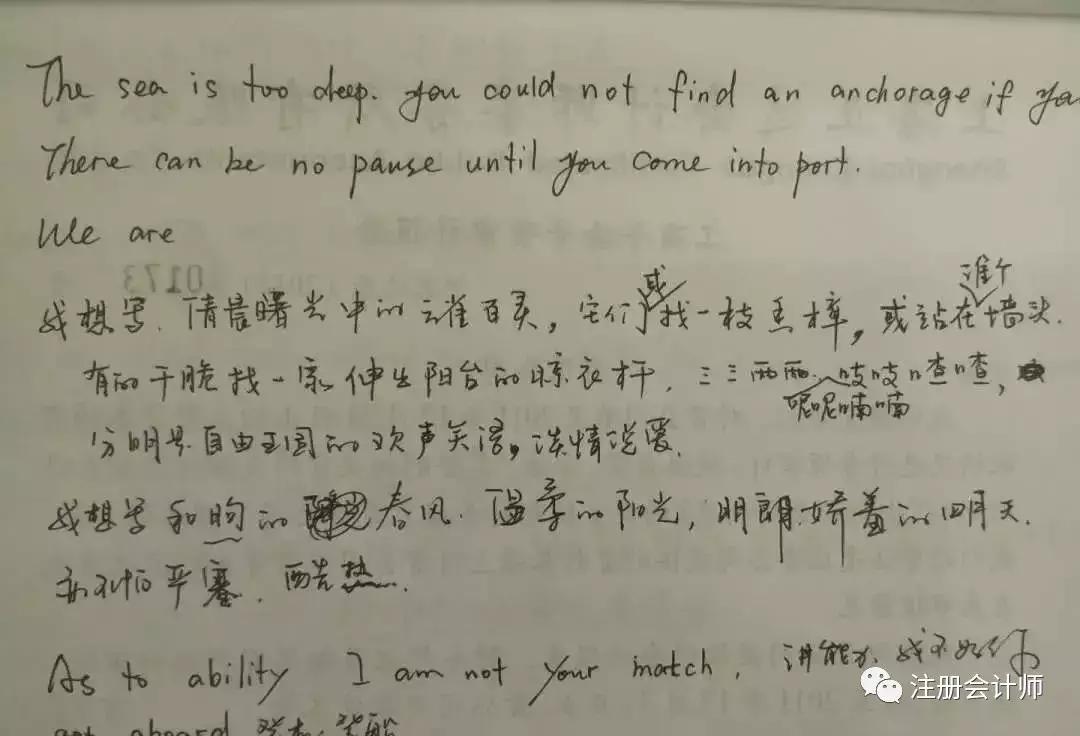 The sea is too deep. you could not find an anchorage if you
There can be no pause until you come into port.
We are
0173
或 准个
我想写、清晨曙光中的云雀百灵，它们找一枝香樟，或站在墙头.
有的干脆找一家伸出阳台的晾衣杆，三三两两、吱吱喳喳，
呢呢喃喃
分明是自由王国的欢声笑语，谈情说爱.
我想写和煦的春风、温柔的阳光，明朗娇羞的四月天.
严寒、酷热.
As to ability I am not your match, 讲能力、我不如你
got aboard
注册会计师